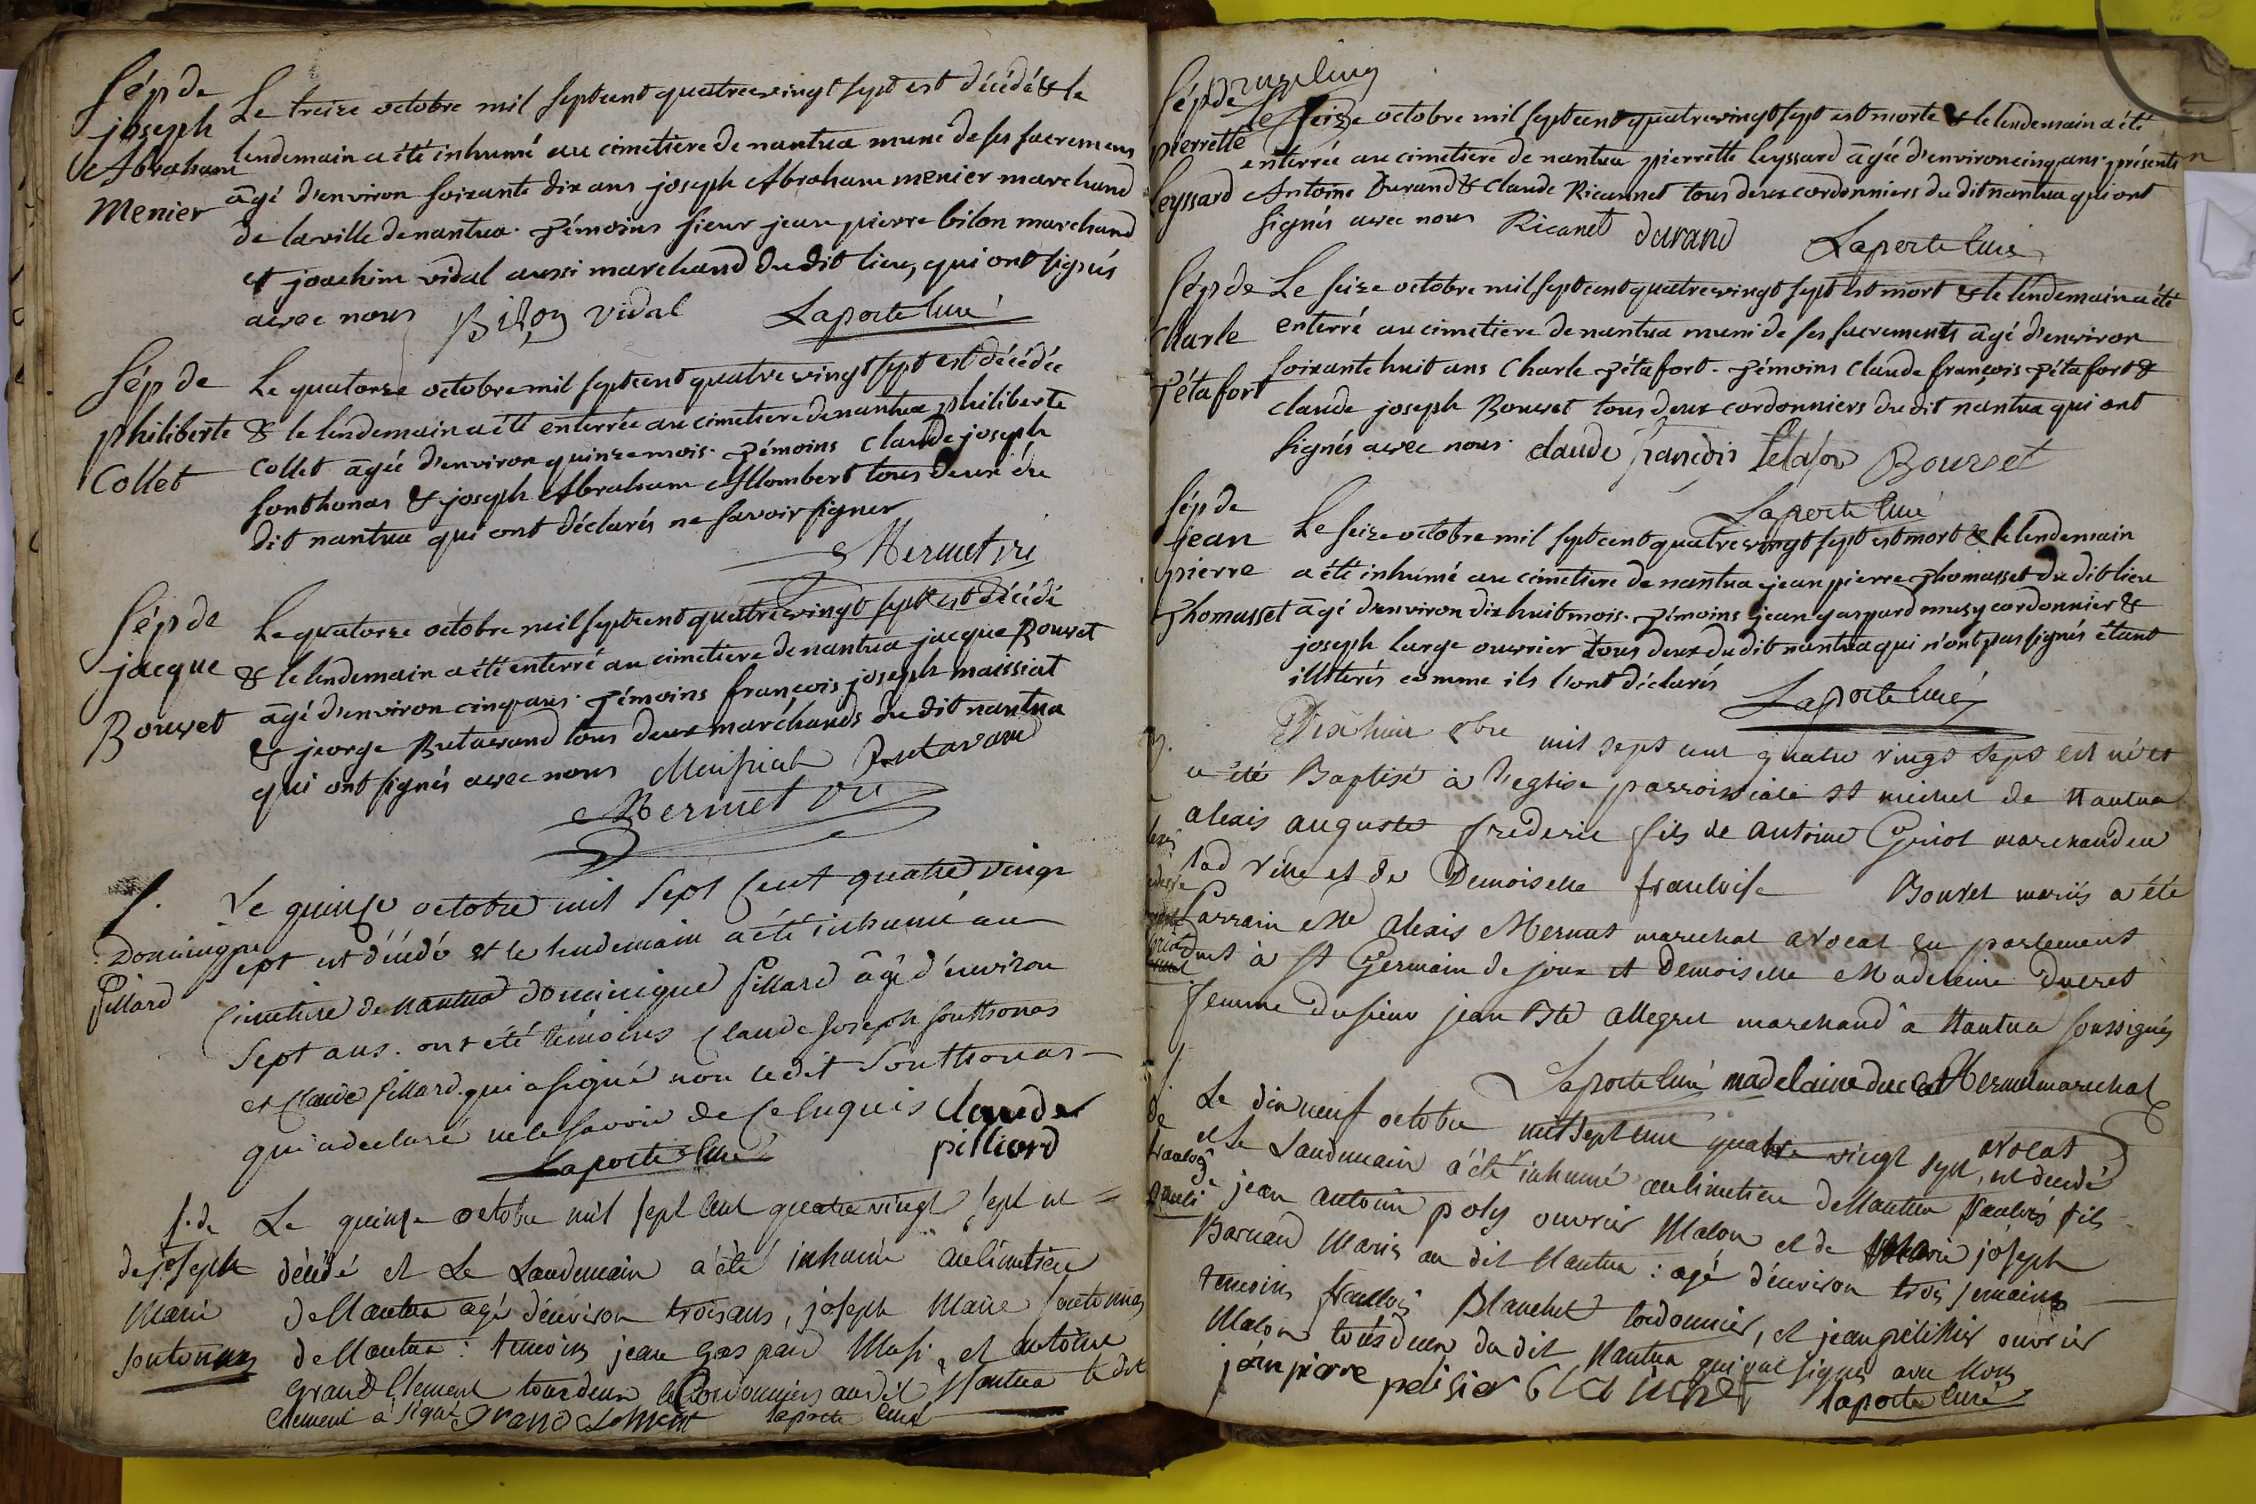 Sép de
joseph
Abraham
Menier
Le treize octobre mil septcent quatrevingt sept est décédé & le
lendemain a été inhumé au cimetiere de nantua muni de ses sacremens
âgé d'environ soixante dix ans joseph Abraham menier marchand
de la ville de nantua. témoins sieur jean pierre bilon marchand
et joachim vidal aussi marchand du dit lieu, qui ont signés
avec nous Bilon vidal Laporte curé
Sép de
philiberte
Collet
Le quatorze octobre mil septcent quatrevingt sept est décédée
& le lendemain a été enterrée au cimetiere de nantua philiberte
Collet âgée d'environ quinze mois. témoins claude joseph
sonthonas & joseph Abraham Allombert tous deux du
dit nantua qui ont déclarés ne savoir signer
Mermet vri
Sép de
jacque
Bouvet
Le quatorze octobre mil septcent quatrevingt sept est décédé
& le lendemain a été enterré au cimetiere de nantua jacque Bouvet
âgé d'environ cinq ans. témoins françois joseph maissiat
& jeorge Butavand tous deux marchands du dit nantua
qui ont signés avec nous Maissiat Butavand
Mermet vri
S.
Dominique
pillard
Le quinze octobre mil sept cent quatre vingt
sept est décédé et le lendemain a été inhumé au
cimetiere de nantua dominique pillard âgé d'environ
sept ans. ont été témoins claude joseph sonthonas
et claude pillard qui a signé non ledit sonthonas
qui a declaré ne le savoir de ce enquis claude
pilliard
Laporte curé
s. de
de joseph
Marie
sontonnas
Le quinze octobre mil sept cent quatre vingt sept est
décédé et Le Landemain a été inhumé au cimetiere
de Nantua agé d'environ trois ans, joseph Marie sontonnas
de Nantua : temoins jean gaspard Musi et antoine
grand Clement tous deux Cordonniers au dit Nantua le dit
clement a signé grand clement laporte curé
Sép de
pierrette
leyssard
Le seize octobre mil septcent quatrevingt sept est morte & le lendemain a été
enterrée au cimetiere de nantua pierrette leyssard âgée d'environ cinq ans. présents
Antoine Durand & claude Ricannet tous deux cordonniers du dit nantua qui ont
signés avec nous Ricanet durand Laporte curé
Sép de
charle
Pétafort
Le seize octobre mil septcent quatrevingt sept est mort & le lendemain a été
enterré au cimetiere de nantua muni de ses sacrements âgé d'environ
soixante huit ans Charle Pétafort. témoins claude françois Pétafort &
claude joseph Bouvet tous deux cordonniers du dit nantua qui ont
signés avec nous. claude françois Petafor Bouvet
Laporte curé
Sép de
jean
pierre
Thomasset
Le seize octobre mil septcent quatrevingt sept est mort & le lendemain
a été inhumé au cimetiere de nantua jean pierre Thomasset du dit lieu
âgé d'environ dix huit mois. témoins jean gaspard musy cordonnier &
joseph large ouvrier tous deux du dit nantua qui n'ont pas signés étant
illiterés comme ils l'ont déclarés
Laporte curé
Dix huit 8bre mil sept cent quatre vingt sept est né et
a été Baptisé à l'eglise parroissiale st michel de Nantua
alexis auguste frederic fils de antoine Guiot marchand en
lad ville et de Demoiselle francoise Bouvet mariés a été
Parrain Me Alexis Mermet marechal avocat en parlement
à st Germain de joux et Demoiselle Madeleine Ducret
femme du sieur jean Bte allegret marchand à Nantua soussignés
Laporte curé madelaine ducret Mermet marechal
avocat
s.
de
francois
de
pauli
Le dix neuf octobre mil sept cent quatre vingt sept, est décédé
et Le Landemain a été inhumé au cimetiere de Nantua francois fils
de jean antoine poly ouvrier Maçon et de Marie joseph
Barnaud Mariés au dit Nantua : agé d'environ trois semaines
temoins francois Blanchet Cordonnier, et jean pelissier ouvrier
Maçon tous deux du dit Nantua qui ont signés avec Nous
jean piere pelisier blanchet laporte curé